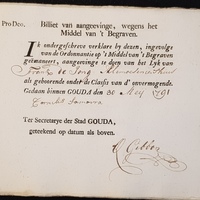 Pro Deo. Billiet van aangeevinge, wegens het
Middel van 't Begraven.
Ik ondergeschreve verklare by dezen, ingevolge
van de Ordonnantie op 't Middel van 't Begraven
geëmaneert, aangevinge te doen van het Lyk van
de Jong
als gehoorende onder de Classis van d' onvermogende.
Gedaan binnen GOUDA den 30 Mey 1791
Cornelis
Ter Secretarye der Stad GOUDA,
geteekend op datum als boven.